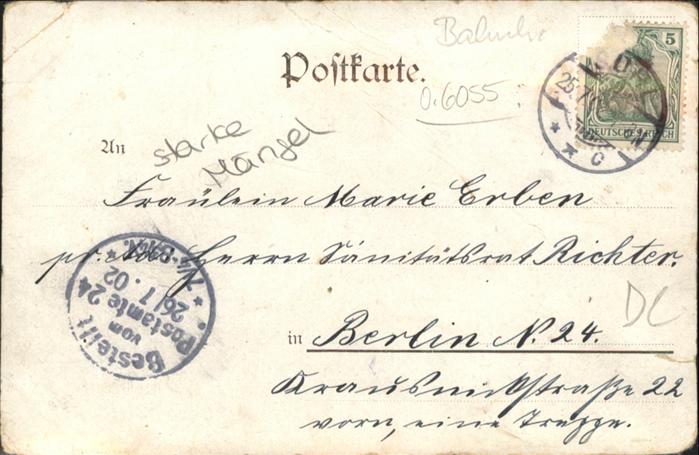 Bahnho
Postkarte.
0.6055
5
DEUTSCHES REICH
25.7
C
An
starke
Mängel
Fräulein Marie Erben
pr. Adr. Herrn Sanitätsrat Richter.
Bestellt
vom
Postamte 24
26/7.02
DC
in Berlin N. 24.
Krausnickstraße 22
vorn, eine Treppe.